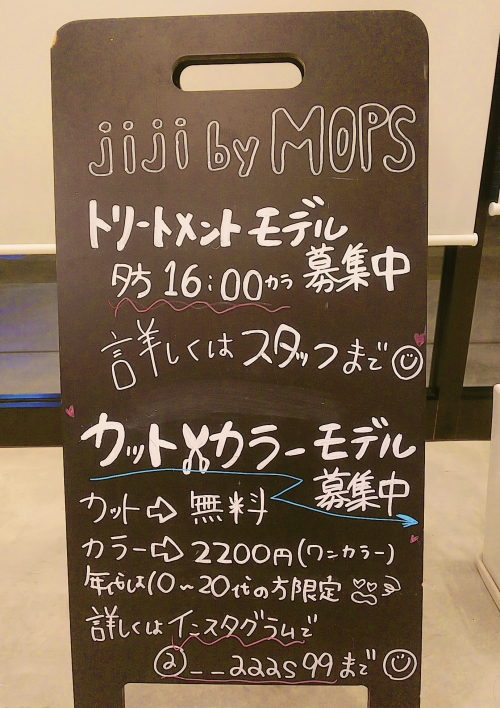 jiji by MOPS
トリートメントモデル
夕方16:00カラ 募集中
詳しくはスタッフまで
カットカラーモデル
募集中
カット⇨無料
カラー⇨2200円(ワンカラー)
年代は10~20代の方限定
詳しくはインスタグラムで
@__222s99まで